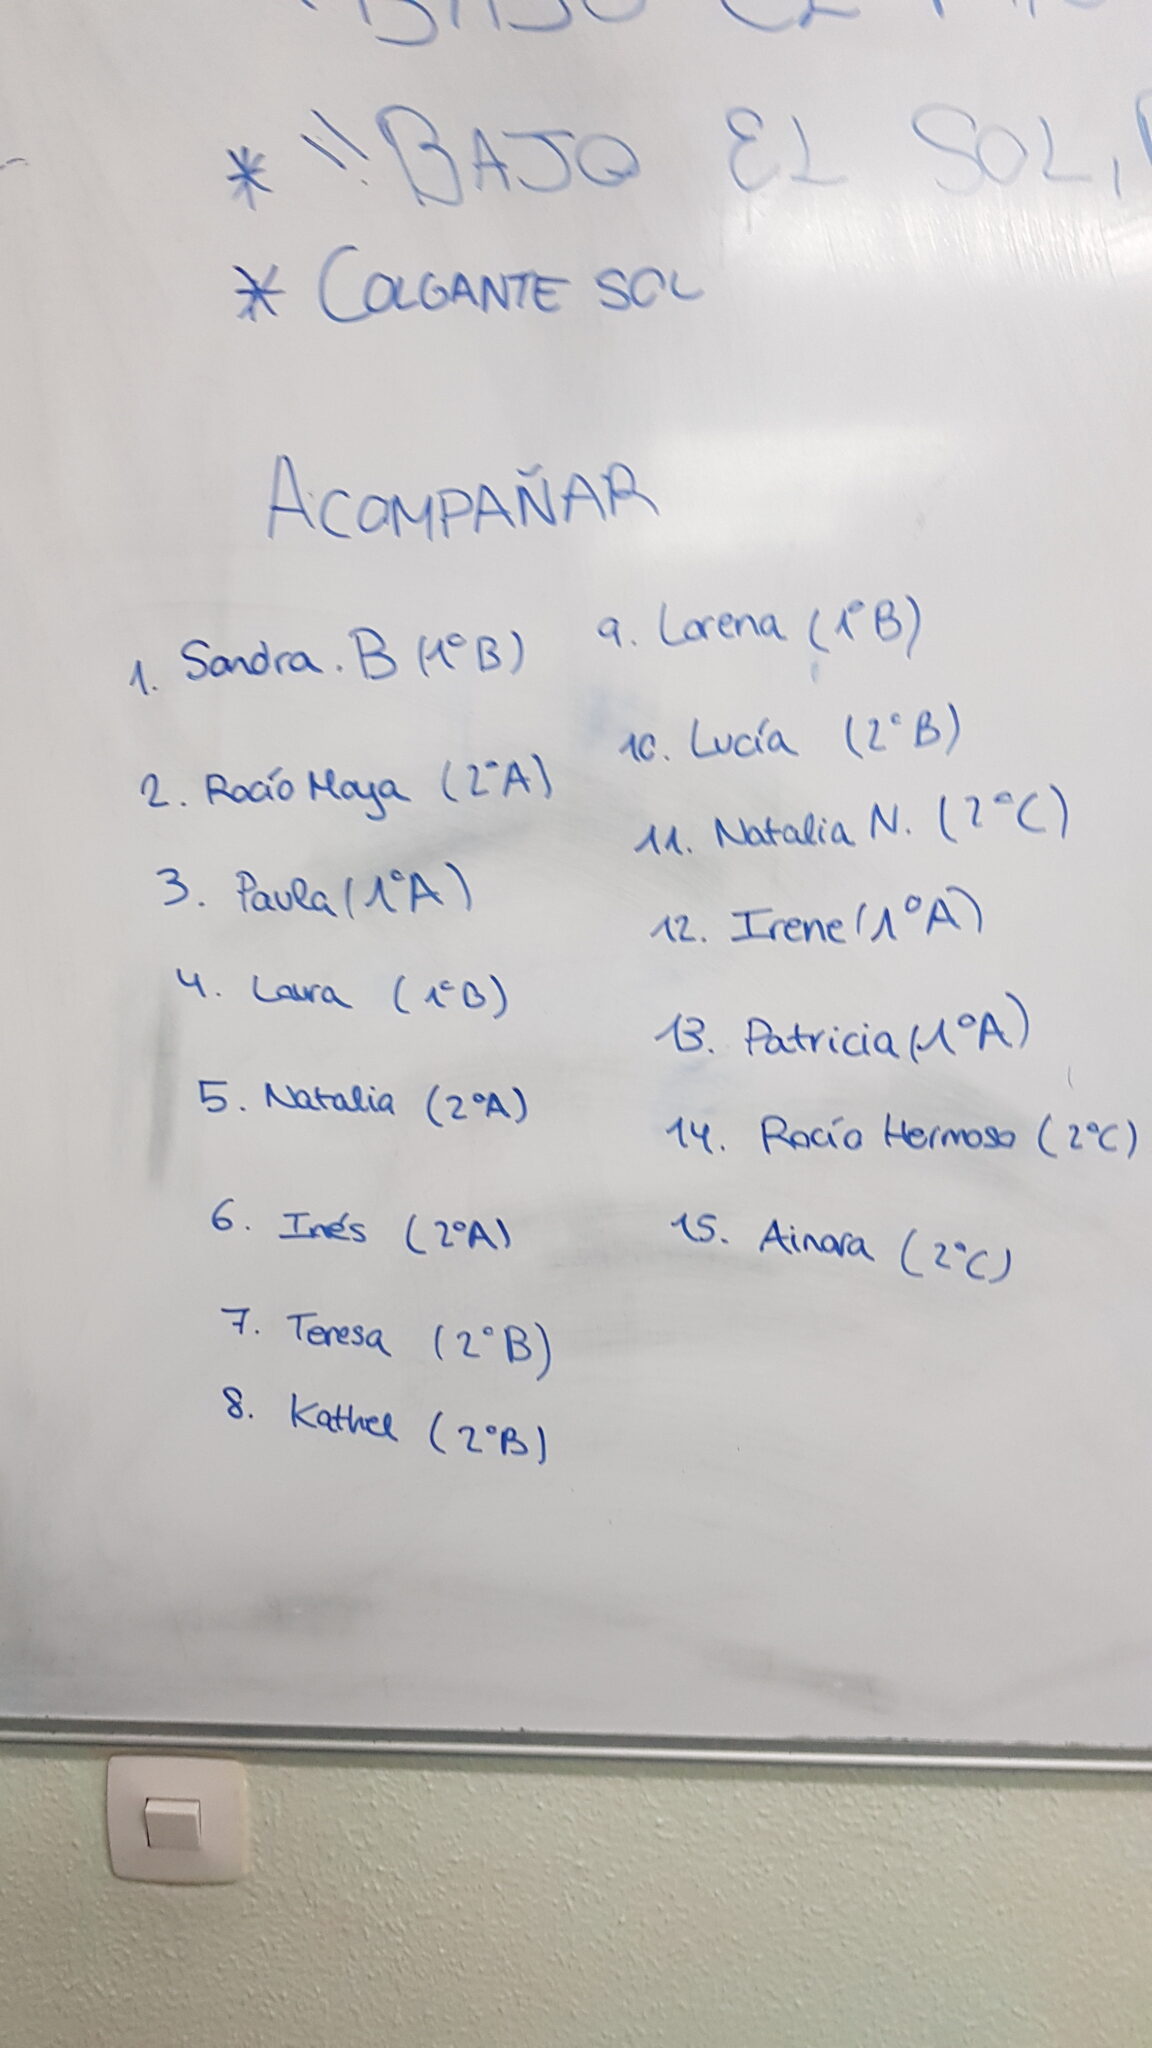 BAJO EL
* "BAJO EL SOL,
* COLGANTE SOL
ACOMPAÑAR
1. Sandra. B (1º B)
2. Rocío Maya (2ºA)
3. Paula (1ºA)
4. Laura (1ºB)
5. Natalia (2ºA)
6. Inés (2ºA)
7. Teresa (2ºB)
8. Kathel (2ºB)
9. Lorena (1ºB)
10. Lucía (2ºB)
11. Natalia N. (2ºC)
12. Irene (1ºA)
13. Patricia (1ºA)
14. Rocío Hermoso (2ºC)
15. Ainara (2ºC)